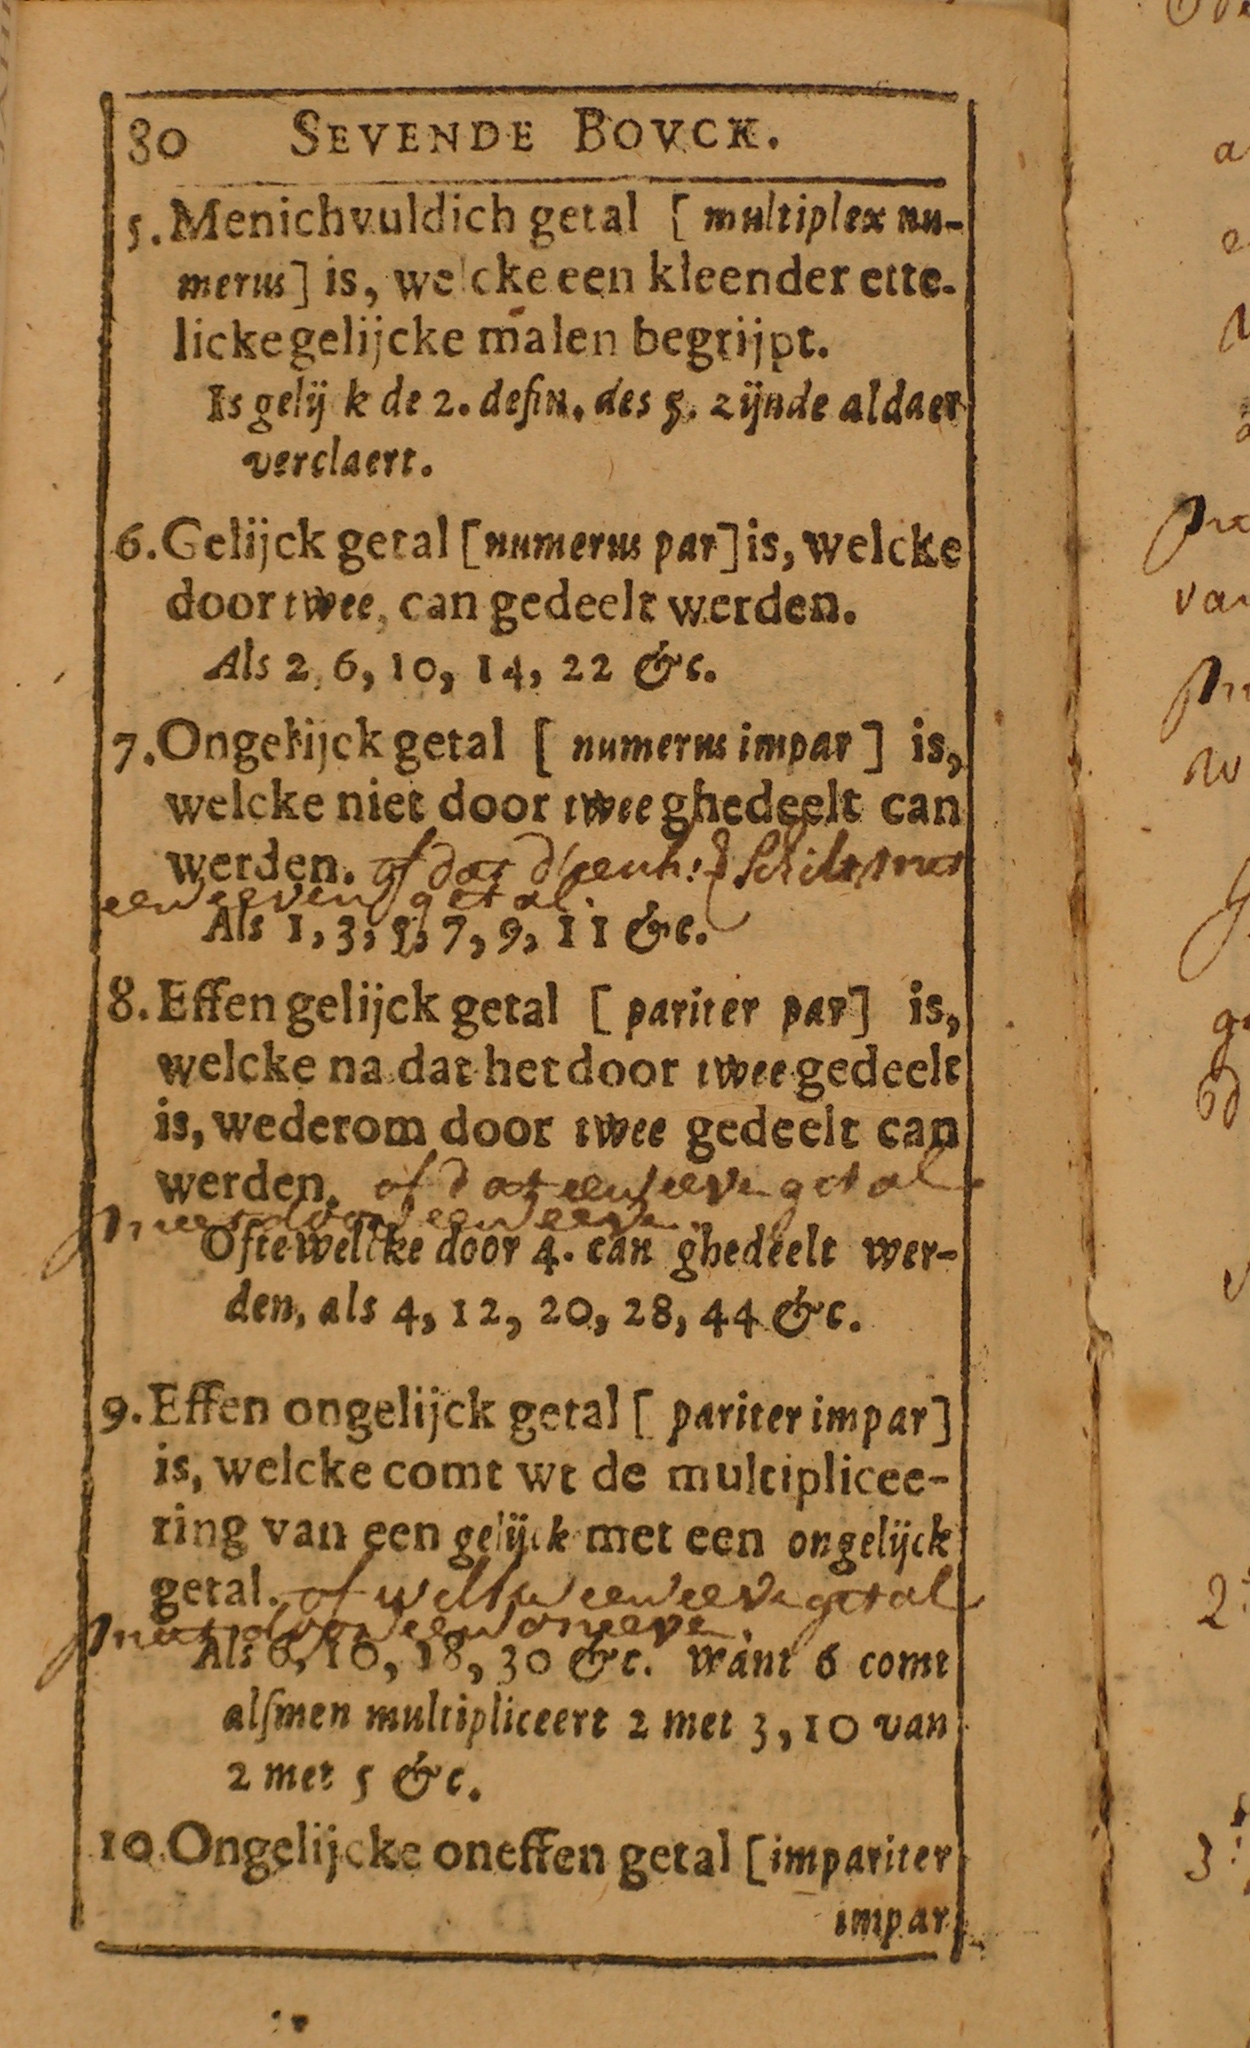 80 SEVENDE BOVCK.
5. Menichvuldich getal [ multiplex nu-
merus] is, welcke een kleender ette-
licke gelijcke malen begrijpt.
Is gelijk de 2. defin. des 5. zijnde aldaer
verclaert.
6. Gelijck getal [numerus par] is, welcke
door twee, can gedeelt werden.
Als 2, 6, 10, 14, 22 &c.
7. Ongelijck getal [ numerus impar ] is,
welcke niet door twee ghedeelt can
werden. of dat
een even getal.
Als 1, 3, 5, 7, 9, 11 &c.
8. Effen gelijck getal [ pariter par] is,
welcke na dat het door twee gedeelt
is, wederom door twee gedeelt can
werden. of dat een eeven getal
door een eeven.
Ofte welcke door 4. can ghedeelt wer-
den, als 4, 12, 20, 28, 44 &c.
9. Effen ongelijck getal [ pariter impar]
is, welcke comt wt de multiplicee-
ring van een gelijck met een ongelijck
getal. of een eeven getal
door een oneeven.
Als 6, 10, 18, 30 &c. want 6 comt
alſmen multipliceert 2 met 3, 10 van
2 met 5 &c.
10 Ongelijcke oneffen getal [impariter
impar